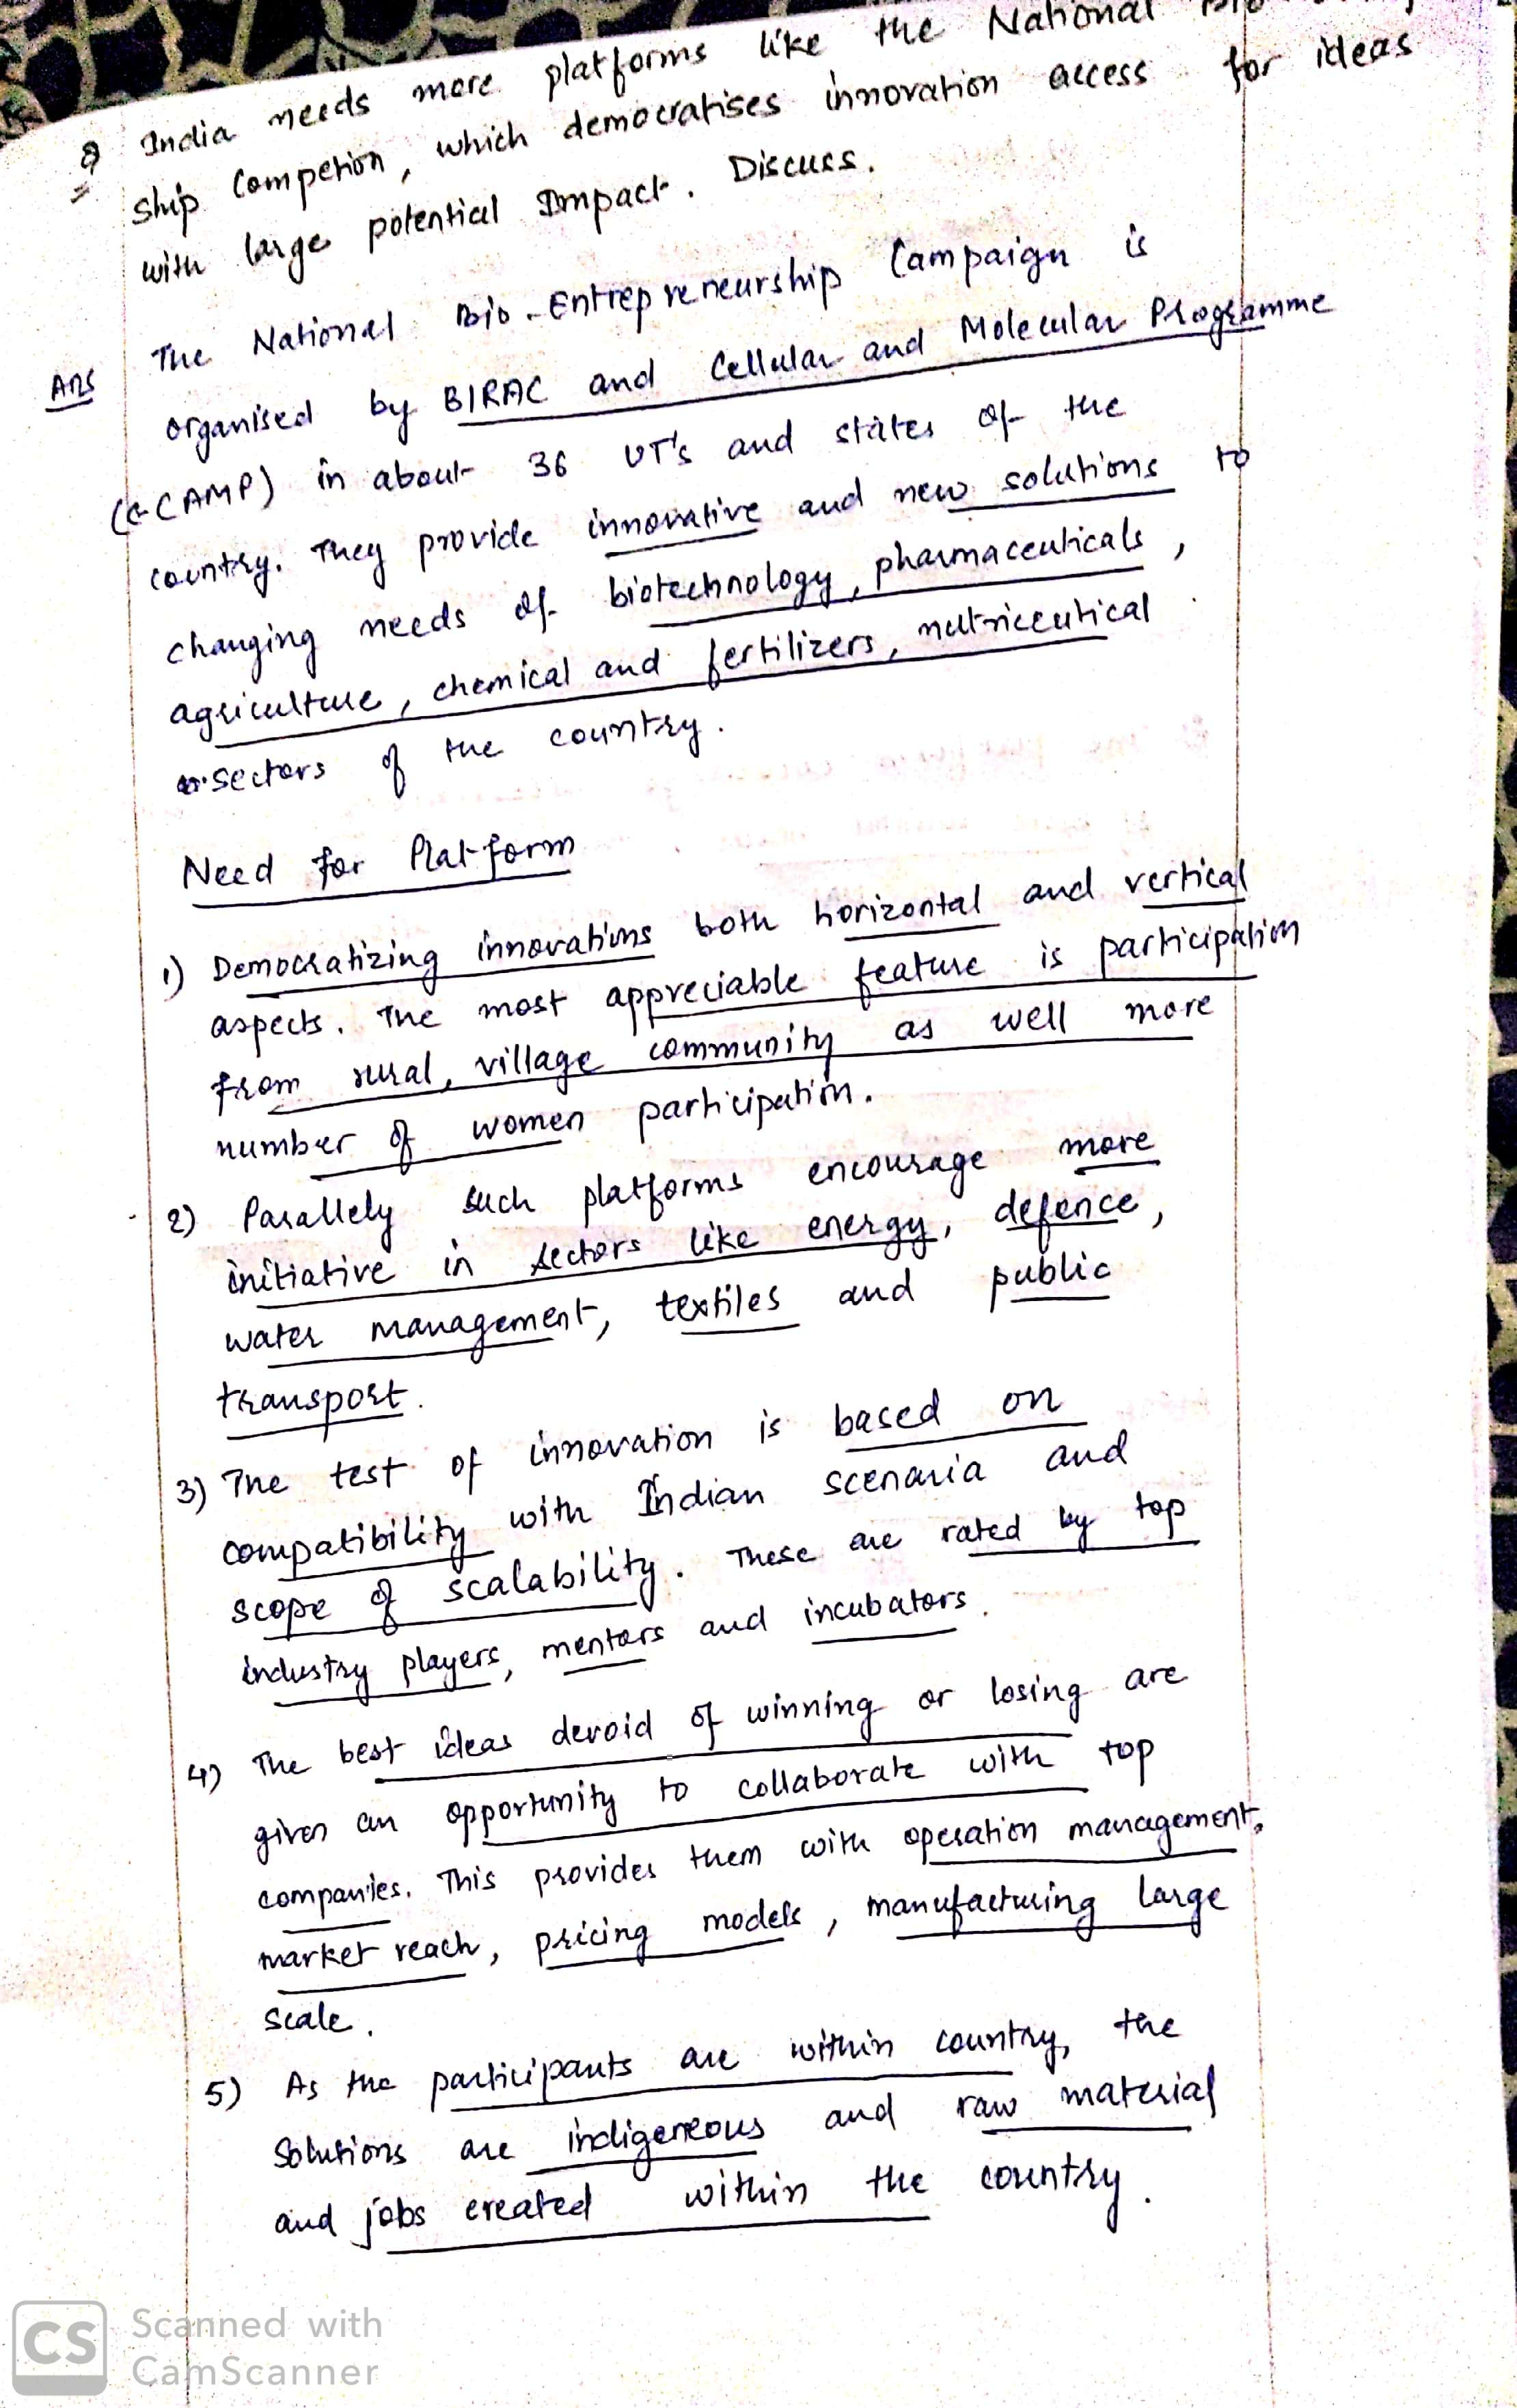 Q India needs more platforms like the National
ship Competion, which democratises innovation access for ideas
with large potential Impact. Discuss.
Ans The National Bio-Entrepreneurship Campaign is
organised by BIRAC and Cellular and Molecular Programme
(C-CAMP) in about 36 UT's and states of the
country. They provide innovative and new solutions to
changing needs of biotechnology, pharmaceuticals,
agriculture, chemical and fertilizers, nutriceutical
sectors of the country.
Need for Platform
1) Democratizing innovations both horizontal and vertical
aspects. The most appreciable feature is participation
from rural, village community as well more
number of women participation.
2) Parallely such platforms encourage more
initiative in sectors like energy, defence,
water management, textiles and public
transport.
3) The test of innovation is based on
compatibility with Indian scenaria and
scope of scalability. These are rated by top
industry players, mentors and incubators.
4) The best ideas devoid of winning or losing are
given an opportunity to collaborate with top
companies. This provides them with operation management,
market reach, pricing models, manufacturing large
scale.
5) As the participants are within country, the
Solutions are indigeneous and raw material
and jobs created within the country.
CS Scanned with
CamScanner